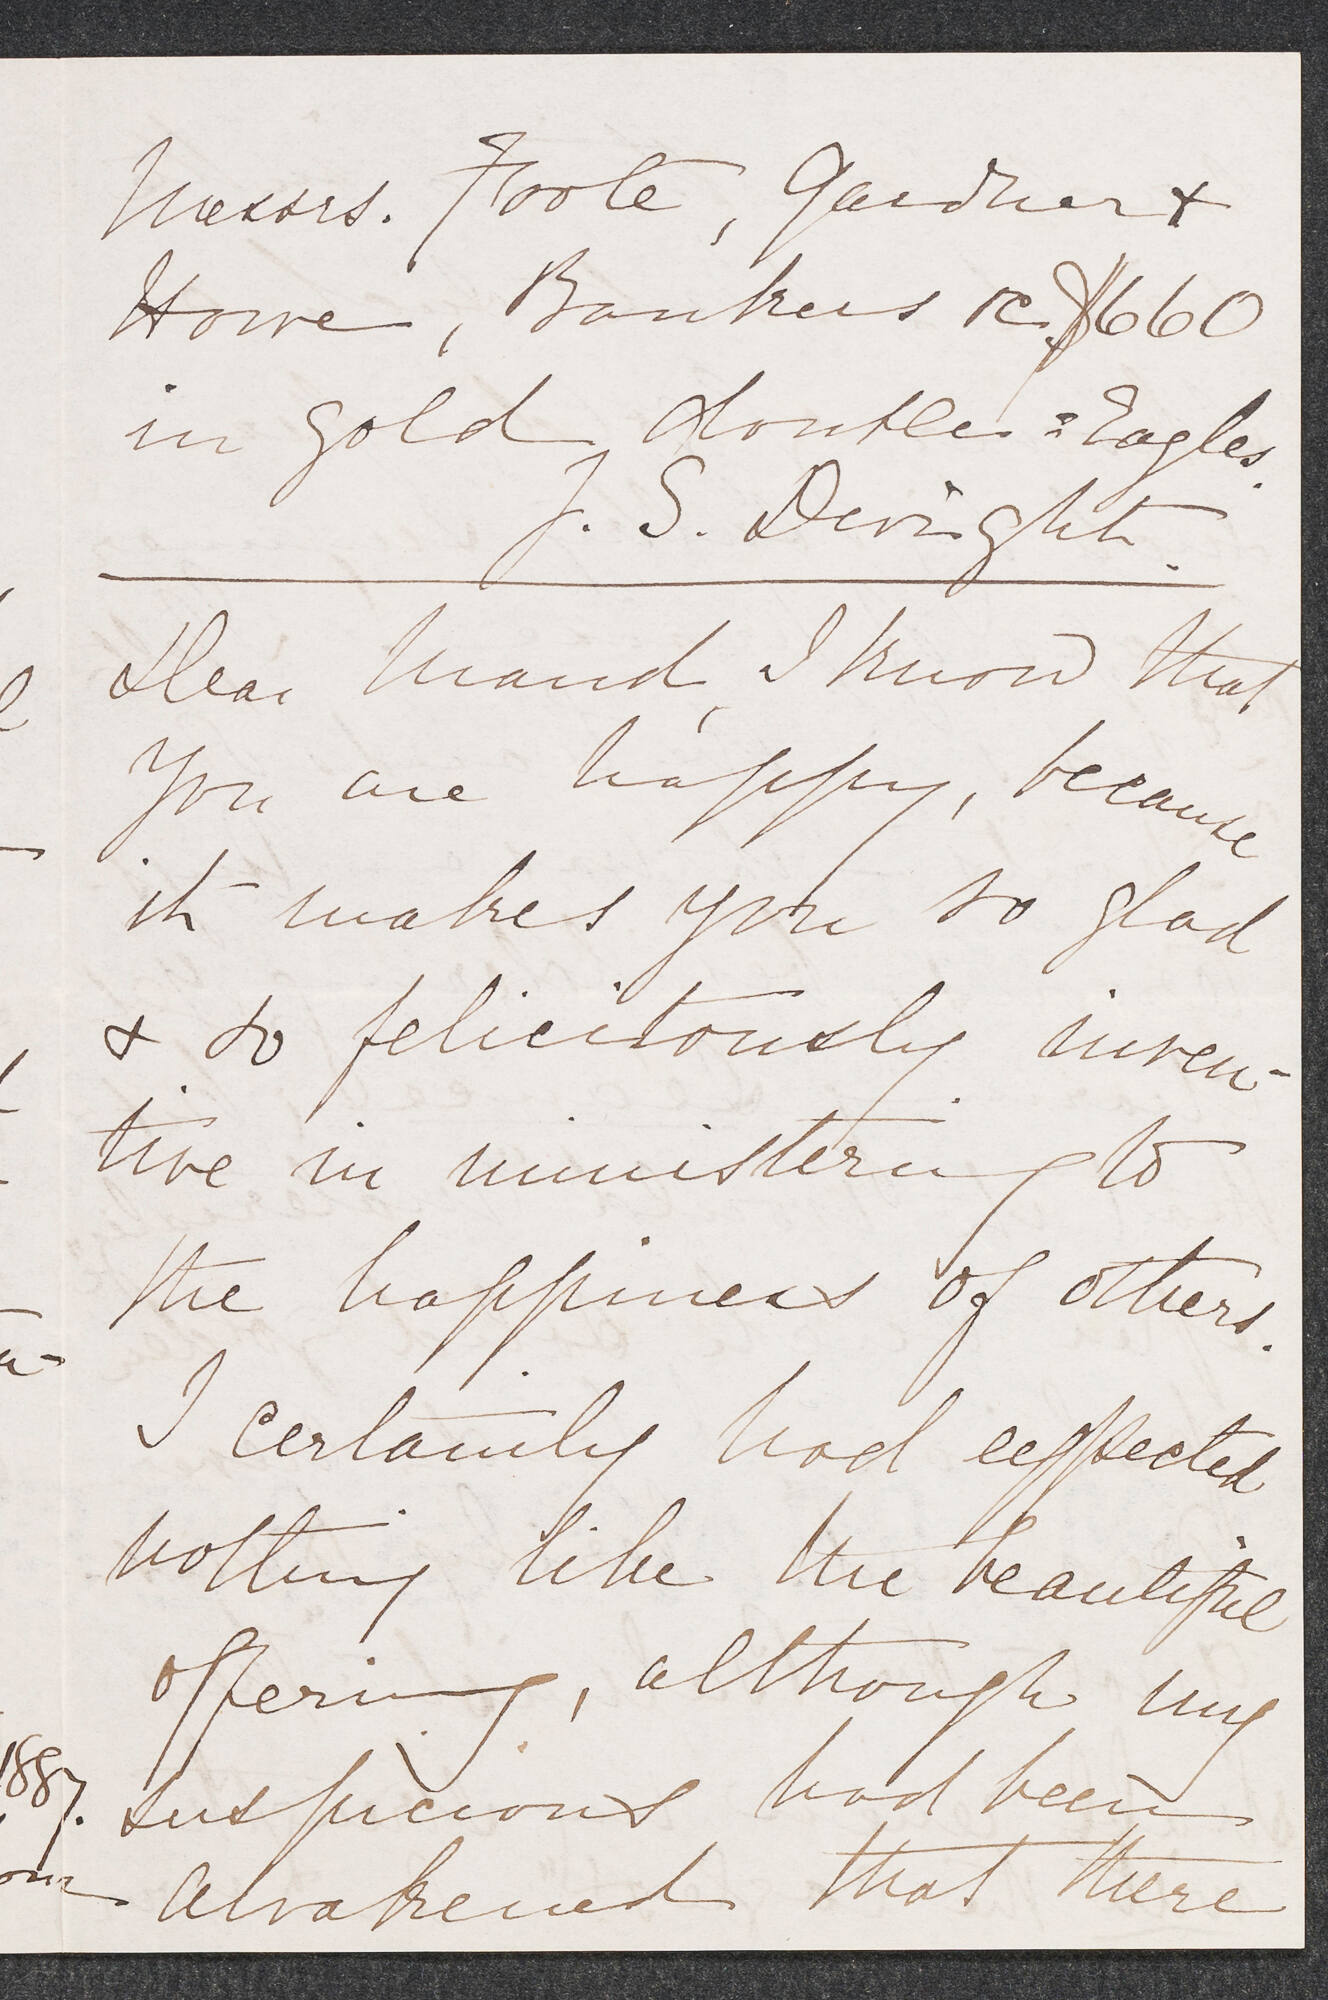 Messrs. Foote, Gardner &
Howe, Bankers rc. $660
in gold double=Eagles.
J. S. Dwight.
Dear Maud, I know that
you are happy, because
it makes you so glad
& so felicitously inven-
tive in ministering to
the happiness of others.
I certainly had expected
nothing like the beautiful
offering, although my
suspicions had been
awakened that there
1887.